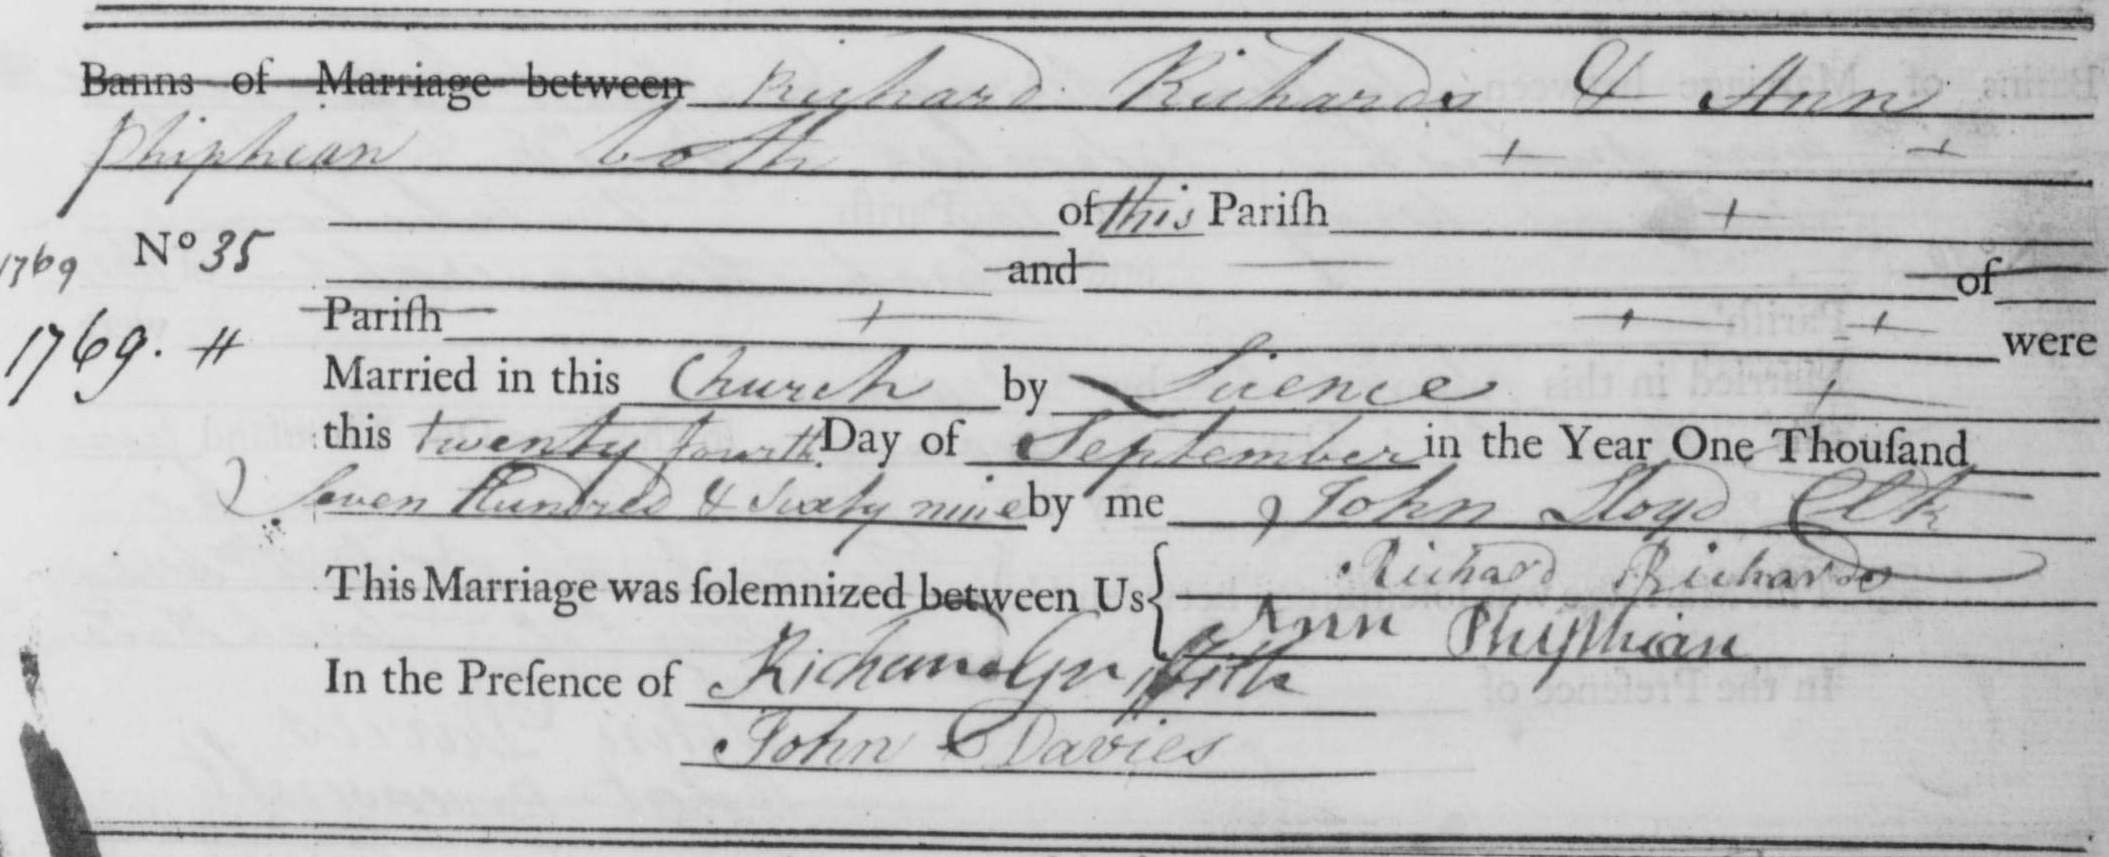 Banns of Marriage between Richard Richards & Ann
Phiphian both
of this Pariſh
1769 No 35 and of
Pariſh were
1769. # Married in this Church by Licence
this twenty fourth Day of September in the Year One Thouſand
Seven Hundred & Sixty nine by me John Lloyd Clk
This Marriage was ſolemnized between Us { Richard Richards
Ann Phiphian
In the Preſence of Richard Griffith
John Davies